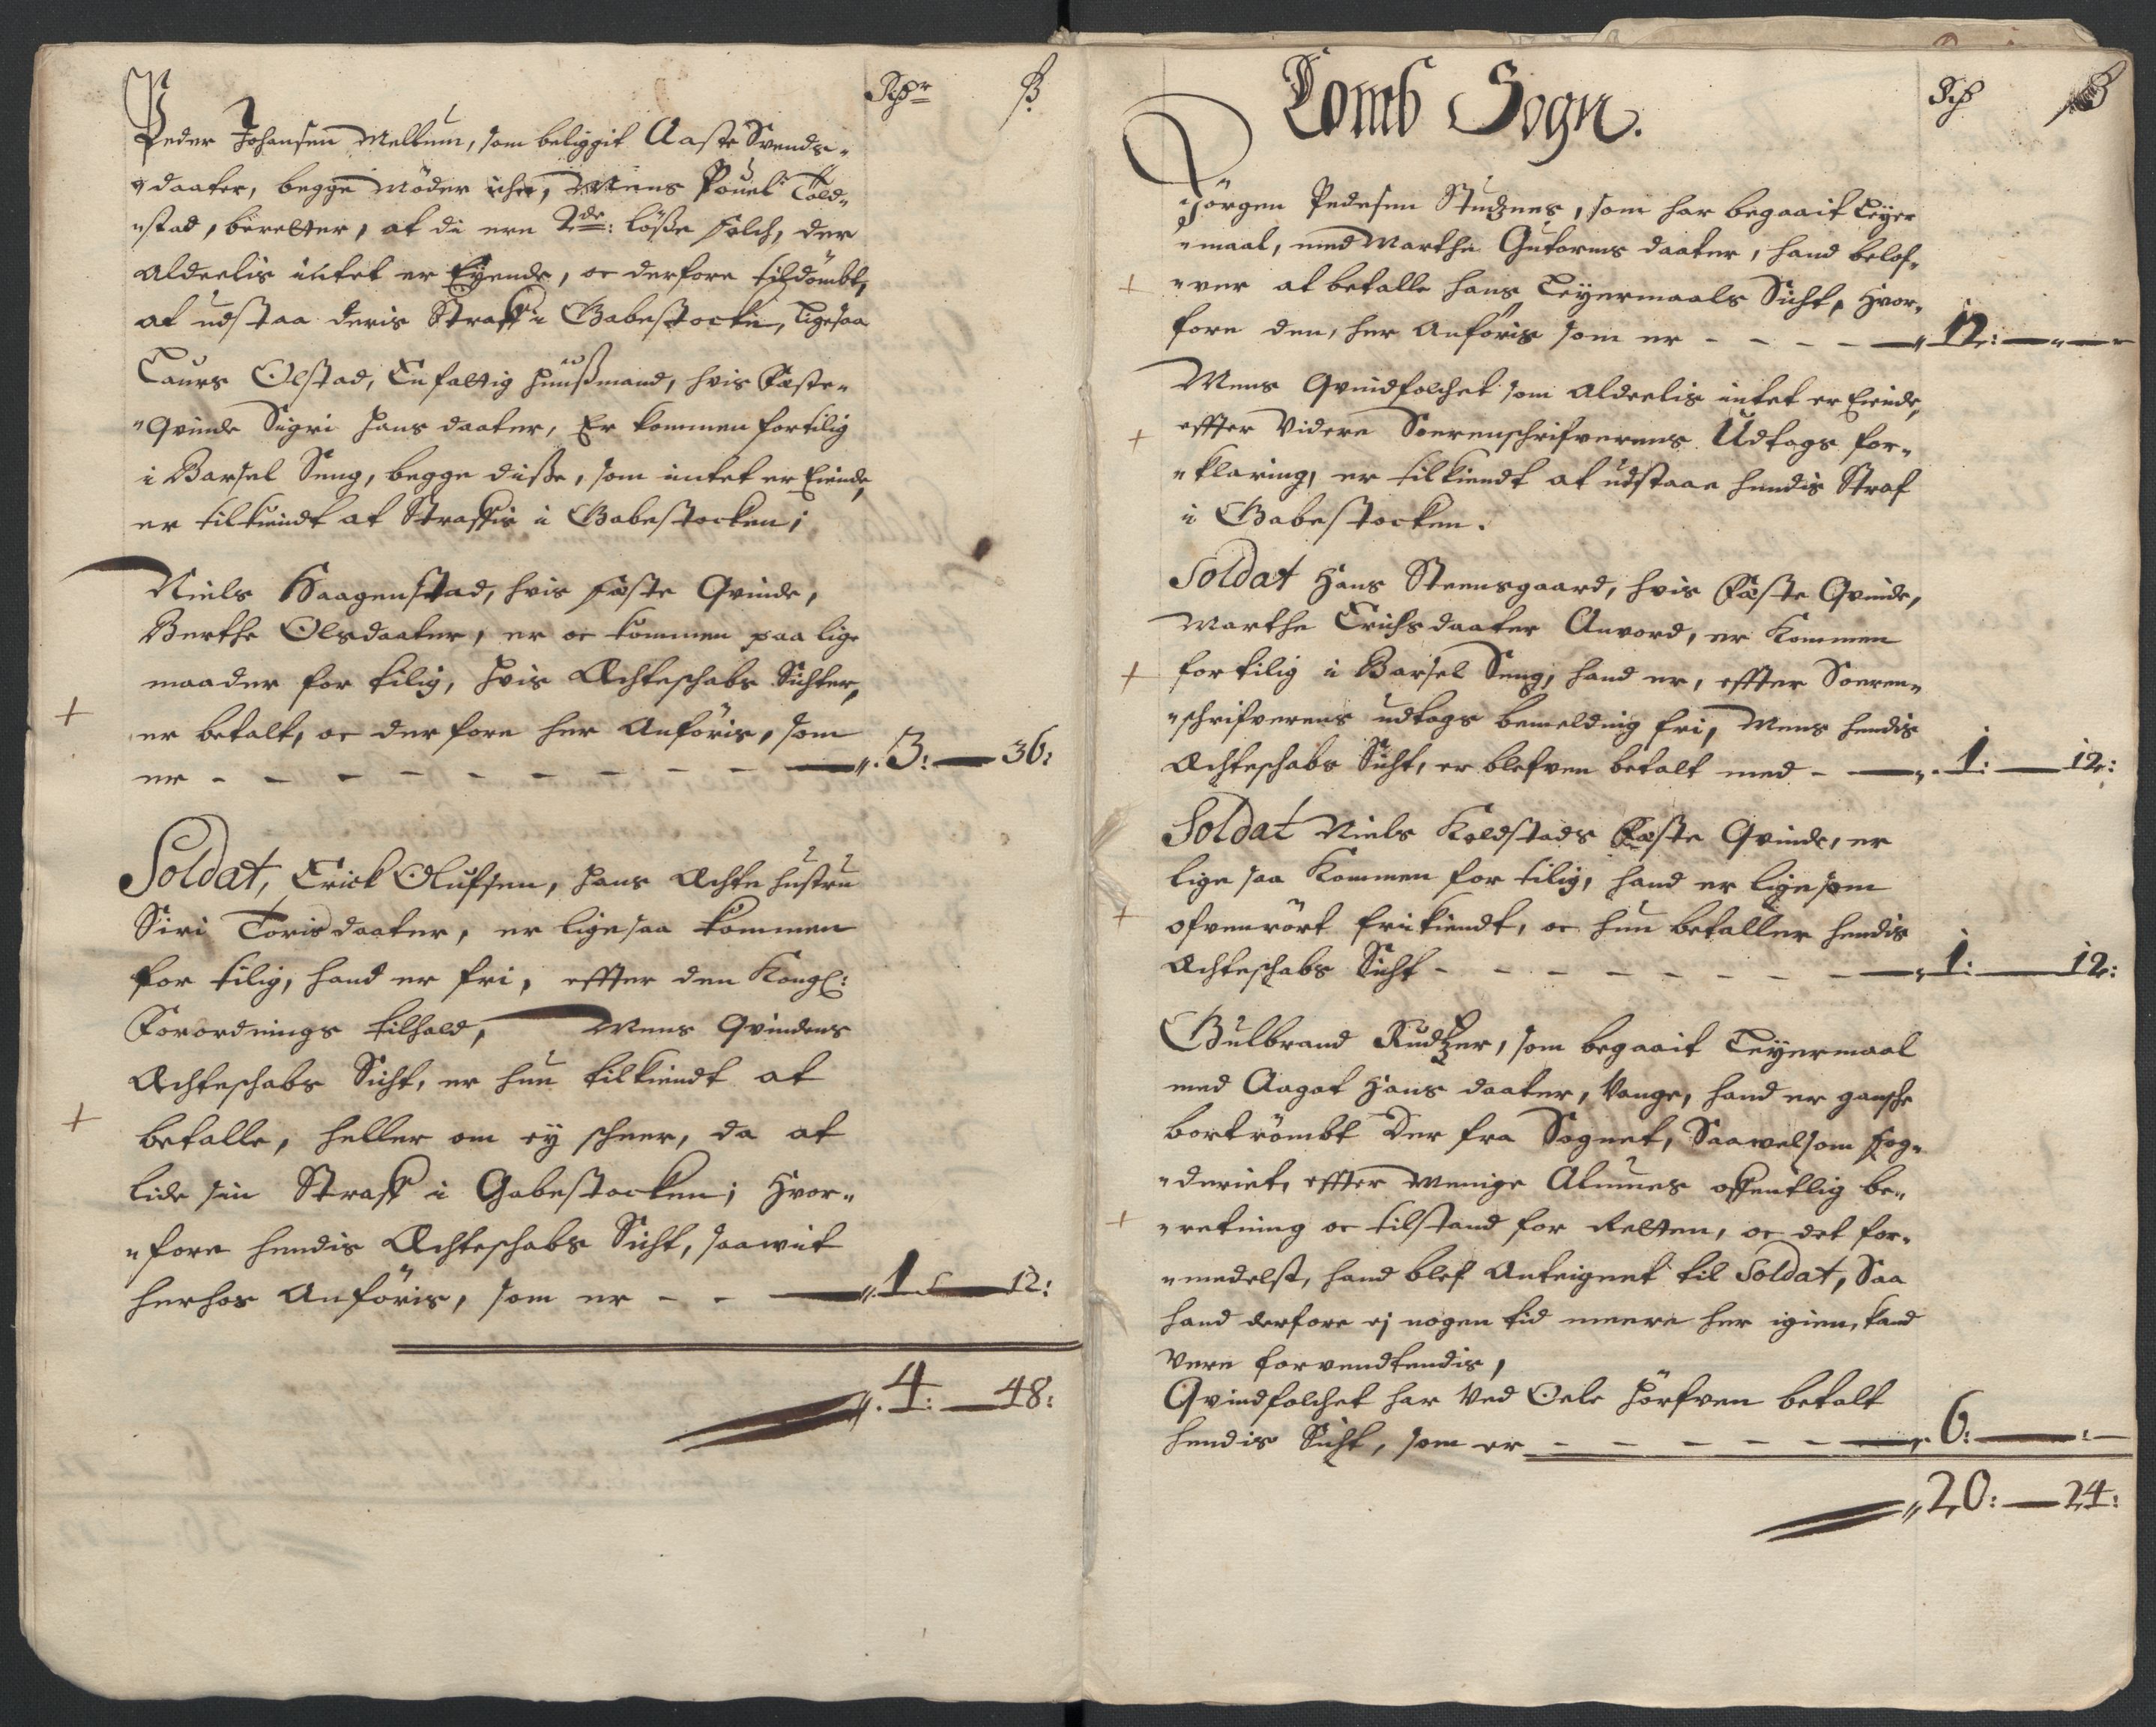 Rdr ß
Peder Johansen Melbum, som beliggit Aaste Svends„
„daater, begge Möder icke, Mens Pouel Told„
„stad, beretter, at di ere 2de: löße folch, der
Aldeelis intet er Eyende, oc derfore tildömbt,
at udstaa deris Straff i Gabestocken, Ligesaa
Laurs Olstad, Enfoltig huußmand, hvis Fæste„
„Qvinde Sigri Hans daater, Er kommen fortilig
i Barsel Seng, begge diße, som intet er Eiende,
er tilkiendt at Straffis i Gabestocken;
Niels Haagenstad, hvis Fæste Qvinde,
Berthe Olsdaater, er oc kommen paa lige
maader for tilig, hvis Ægteschabs Sichter,
er betalt, oc derfore her Anföris, som
er - - - - - - - - - - „ 3: — 36:
Soldat, Erick Olufsen, hans Ægte hustru
Siri Torisdaater, er ligesaa kommen
for tilig, hand er fri, effter den Kongl:
Forordnings tilhald, Mens Qvindens
Ægteschabs Sicht, er hun tilkiendt at
betalle, heller om ey scheer, da at
lide sin Straff i Gabestocken; Hvor„
„fore hendis Ægteschabs Sicht, saawit
herhos Anföris, som er - - — „ 1 — 12:
„ 4: — 48:
Tomb Sogn.
Rdr ß
Jörgen Pedersen Studznes, som har begaait Leyer
„maal, med Marthe Gutorms daater, hand belof„
„ver at betalle hans Leyermaals Sicht, Hvor„
fore den, her Anföris som er - - - - „ 12: — „ —
Mens Qvindfolchet som Aldeelis intet er Eiende,
effter Videre Sorenschrifverens Udtogs for„
„klaring, er tilkiendt at udstaae hendis Straf
i Gabestocken.
Soldat Hans Steensgaard, hvis Fæste Qvinde,
Marthe Erichs daater Anvord, er Kommen
for tilig i Barsel Seng, hand er, effter Soren„
„schrifverens udtogs bemelding fri, Mens hendis
Ægteschabs Sicht, er blefven betalt med - — „ 1: — 12:
Soldat Niels Koldstads Fæste Qvinde, er
lige saa Kommen for tilig, hand er ligesom
ofvenrört frikiendt, oc hun betaller hendis
Ægteschabs Sicht - - - - - - - - — „ 1: — 12:
Gulbrand Rudzer, som begaait Leyermaal
med Aagot Hans daater, Vange, hand er gansche
bortrömbt der fra Sognet, Saawelsom fog„
„deriet, effter Menige Almues offentlig be„
„retning oc tilstand for Retten, oc det for„
„medelst, hand blef Anteignet til Soldat, Saa
hand derfore ej nogen tid meere her igien, kand
Vere forvendtendis,
Qvindfolchet har Ved Oele Hörfven betalt
hendis Sicht, som er - - - - - — „ 6: — : —
„ 20: — 24: